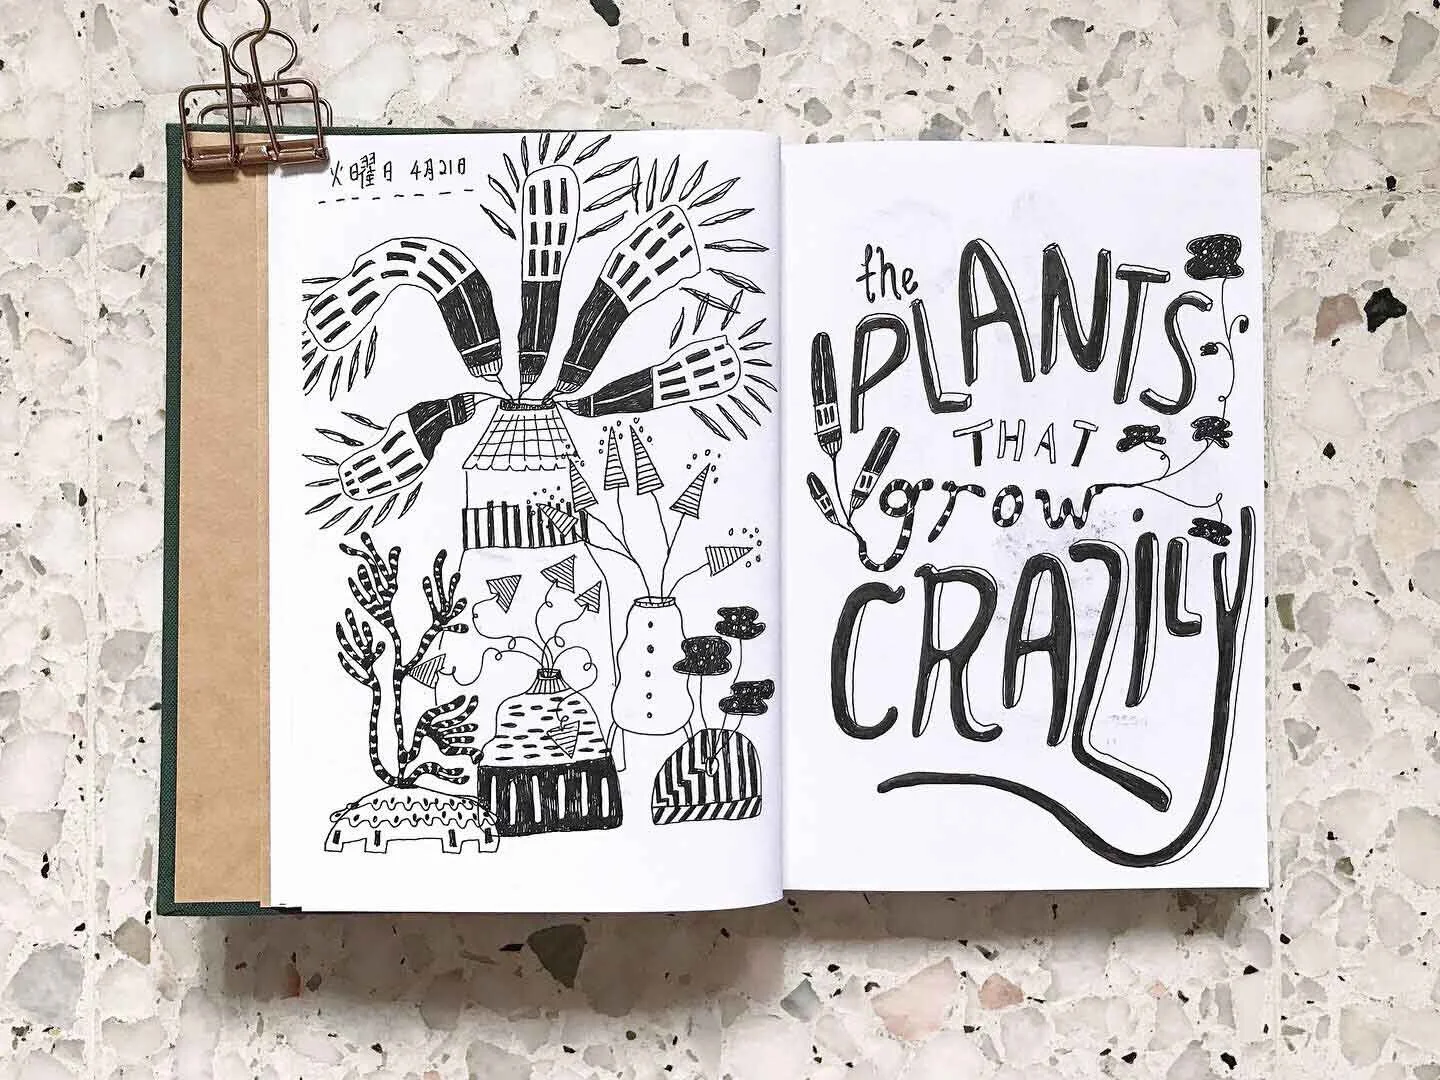 火曜日 4月21日
the
PLANTS
THAT
grow
CRAZILY